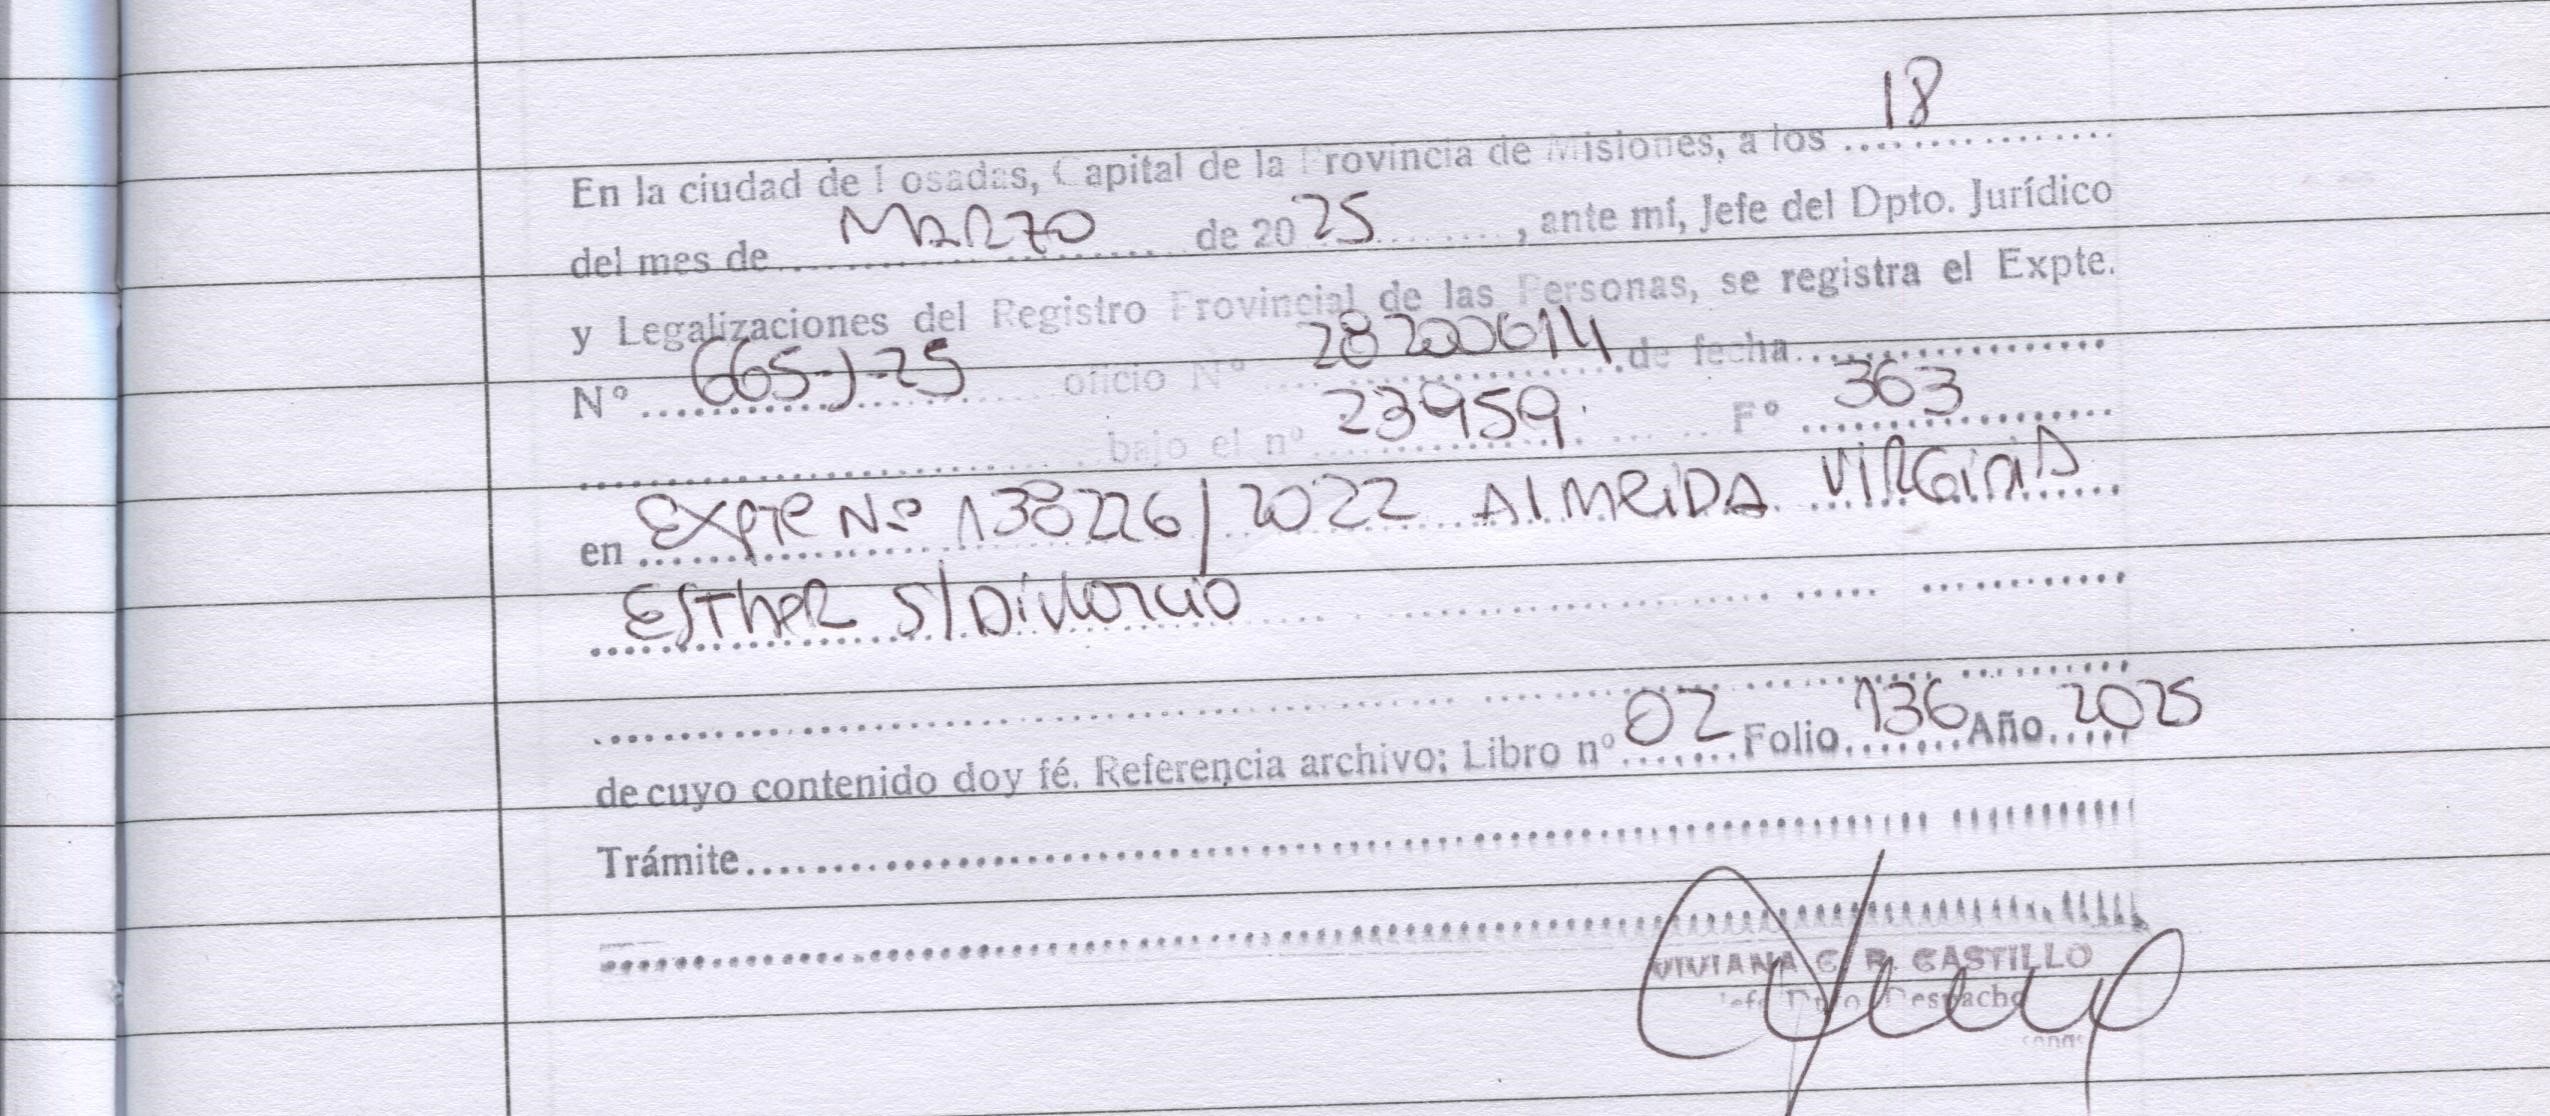 En la ciudad de Posadas, Capital de la Provincia de Misiones, a los 18
del mes de MARZO de 2025, ante mí, Jefe del Dpto. Jurídico
y Legalizaciones del Registro Provincial de las Personas, se registra el Expte.
Nº 665-J-25 oficio Nº 28200614 de fecha
bajo el nº 23959 Fº 363
en EXPTE Nº 138226/2022 ALMEIDA VIRGINIA
ESTHER S/DIVORCIO
de cuyo contenido doy fé. Referencia archivo: Libro nº 02 Folio 136 Año 2025
Trámite
VIVIANA C. R. CASTILLO
Jefe Dpto. Despacho